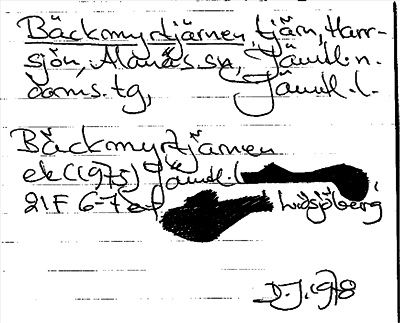 Bäckmyrtjärnen, tjärn, Harr-
sjön, Alanäs sn, Jämtl. n.
doms. tg, Jämtl. l.
Bäckmyrtjärnen
ek (1975) Jämtl. l
21F 6-7 ef Lidsjöberg
D.J. 1978